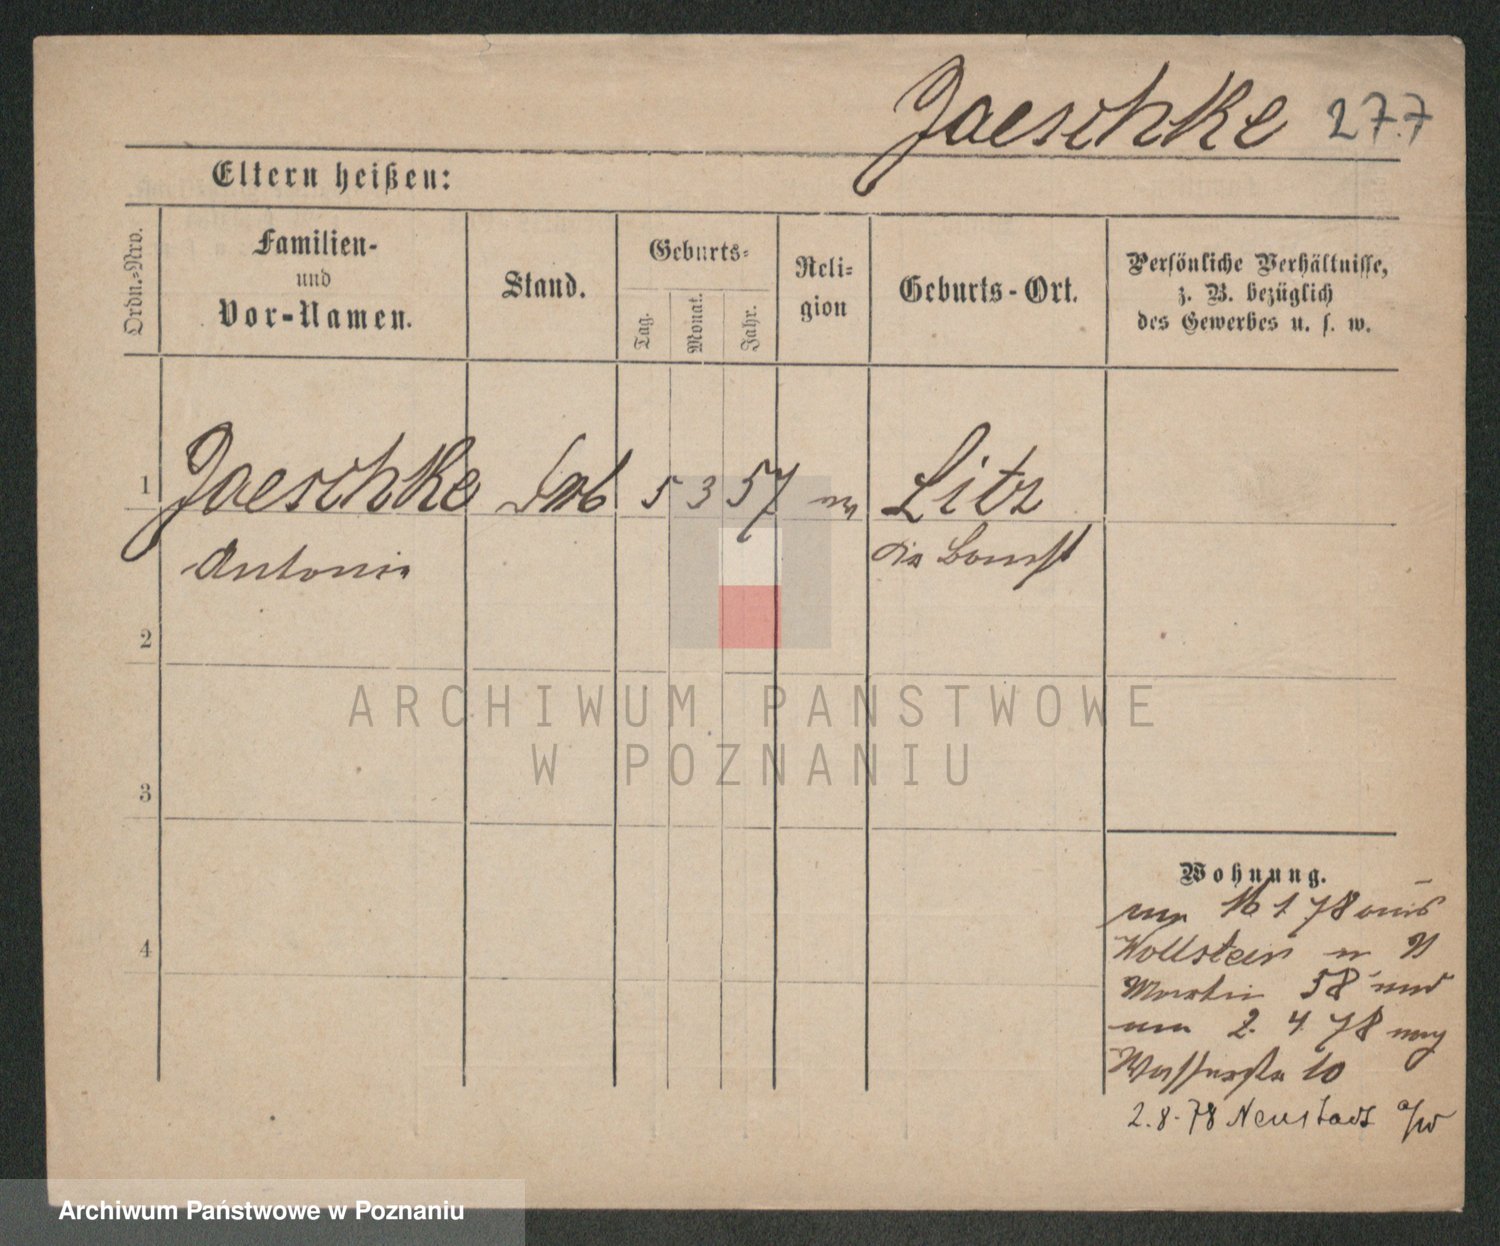 Jaeschke 277
Eltern heißen:
Ordn.-Nro.
Familien-
und
Vor-Namen.
Stand.
Geburts-
Tag.
Monat.
Jahr.
Reli-
gion
Geburts-Ort.
Persönliche Verhältnisse,
z. B. bezüglich
des Gewerbes u. s. w.
1 Jaeschke 5 3 57
Antonie
2
3
4
Wohnung.
16 1 78 aus
Wollstein n
Martin 58 und
am 2. 4 78 nach
Wasserstr 10
2.8.78 Neustadt a/W
ARCHIWUM PANSTWOWE
W POZNANIU
Archiwum Państwowe w Poznaniu